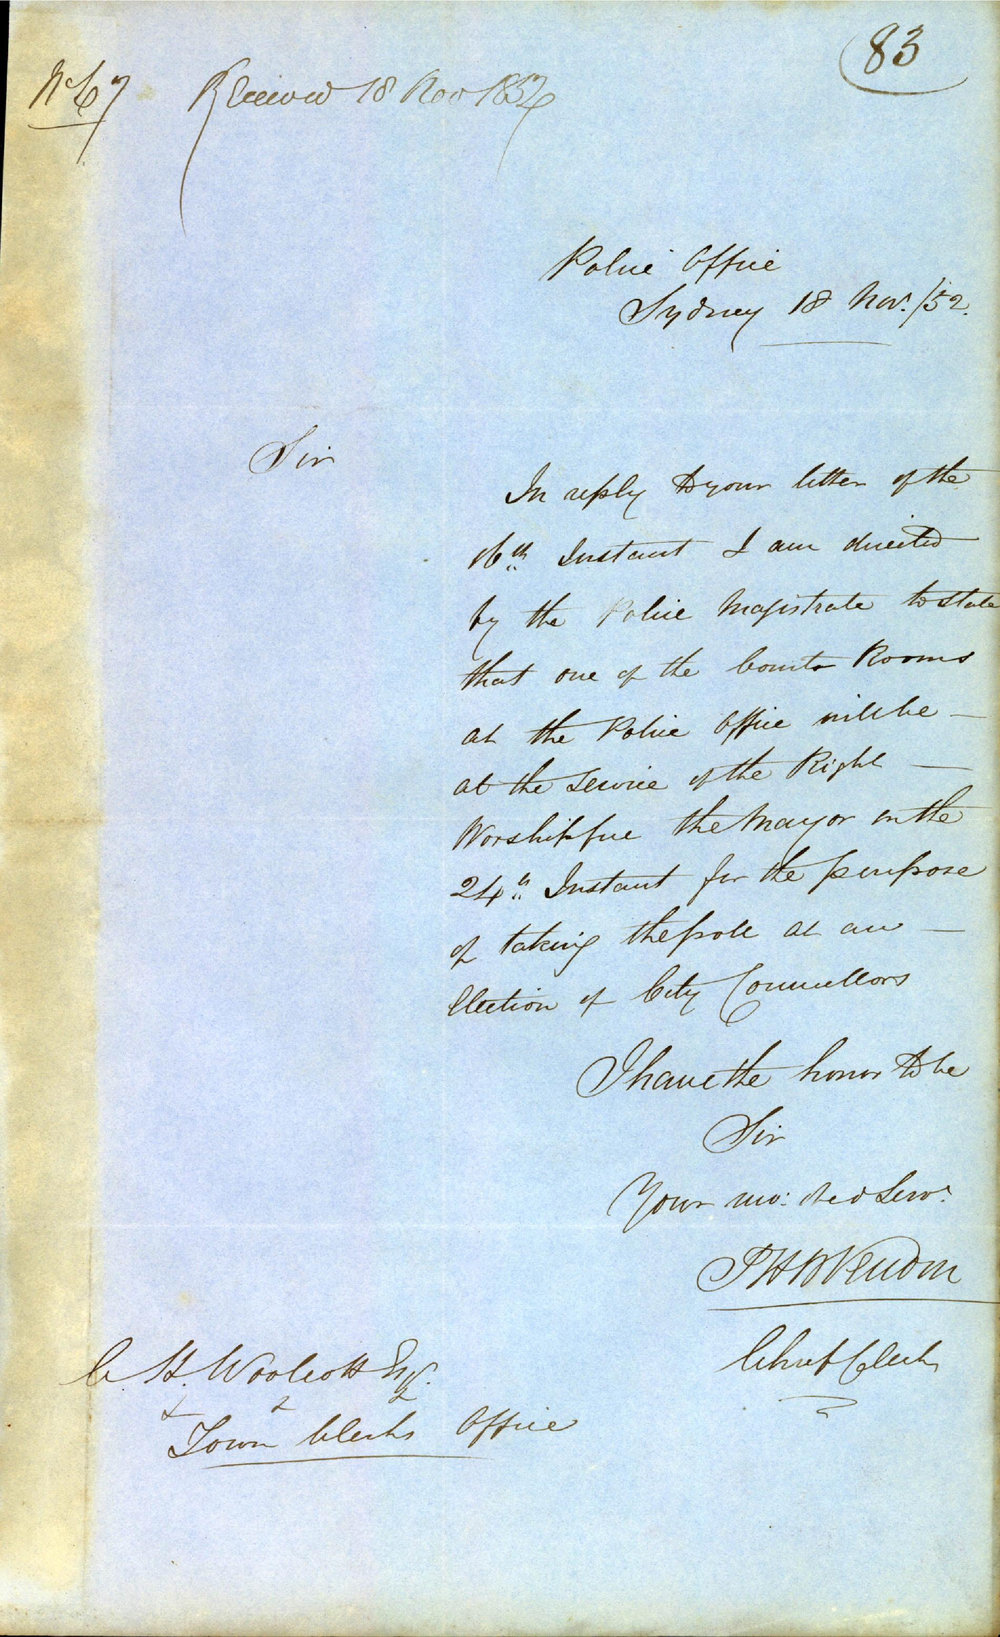 83
No 67 Received 18 Nov 1852
Police Office
Sydney 18 Nov. /52.
Sir
In reply to your letter of the
16th Instant I am directed
by the Police Magistrate to state
that one of the Court Rooms
at the Police Office will be —
at the service of the Right —
Worshipful the Mayor on the
24th Instant for the purpose
of taking the poll at an —
Election of City Councillors
I have the honor to be
Sir
Your mo: Obed Servt
Chief Clerk
C. H. Woolcott Esq.
Town Clerks Office